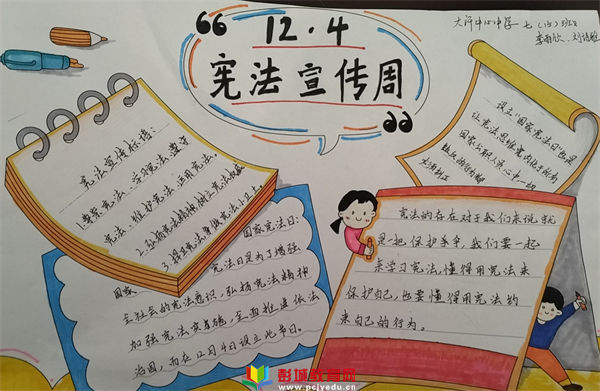 12·4
宪法宣传周
七(15)班
宪法宣传标语:
1.尊崇宪法、学习宪法、遵守
宪法、维护宪法、运用宪法。
2.弘扬宪法精神,树立宪法权威
国家宪法日:
国家宪法日是为了增强
全社会的宪法意识,弘扬宪法精神
加强宪法实施,全面推进依法
治国,而在12月4日设立此节日。
设立"国家宪法日"
让宪法思维
宪法的存在对于我们来说就
是一把保护伞,我们要一起
来学习宪法,懂得用宪法来
保护自己,也要懂得用宪法约
束自己的行为。
彭城教育网
www.pcjyedu.cn